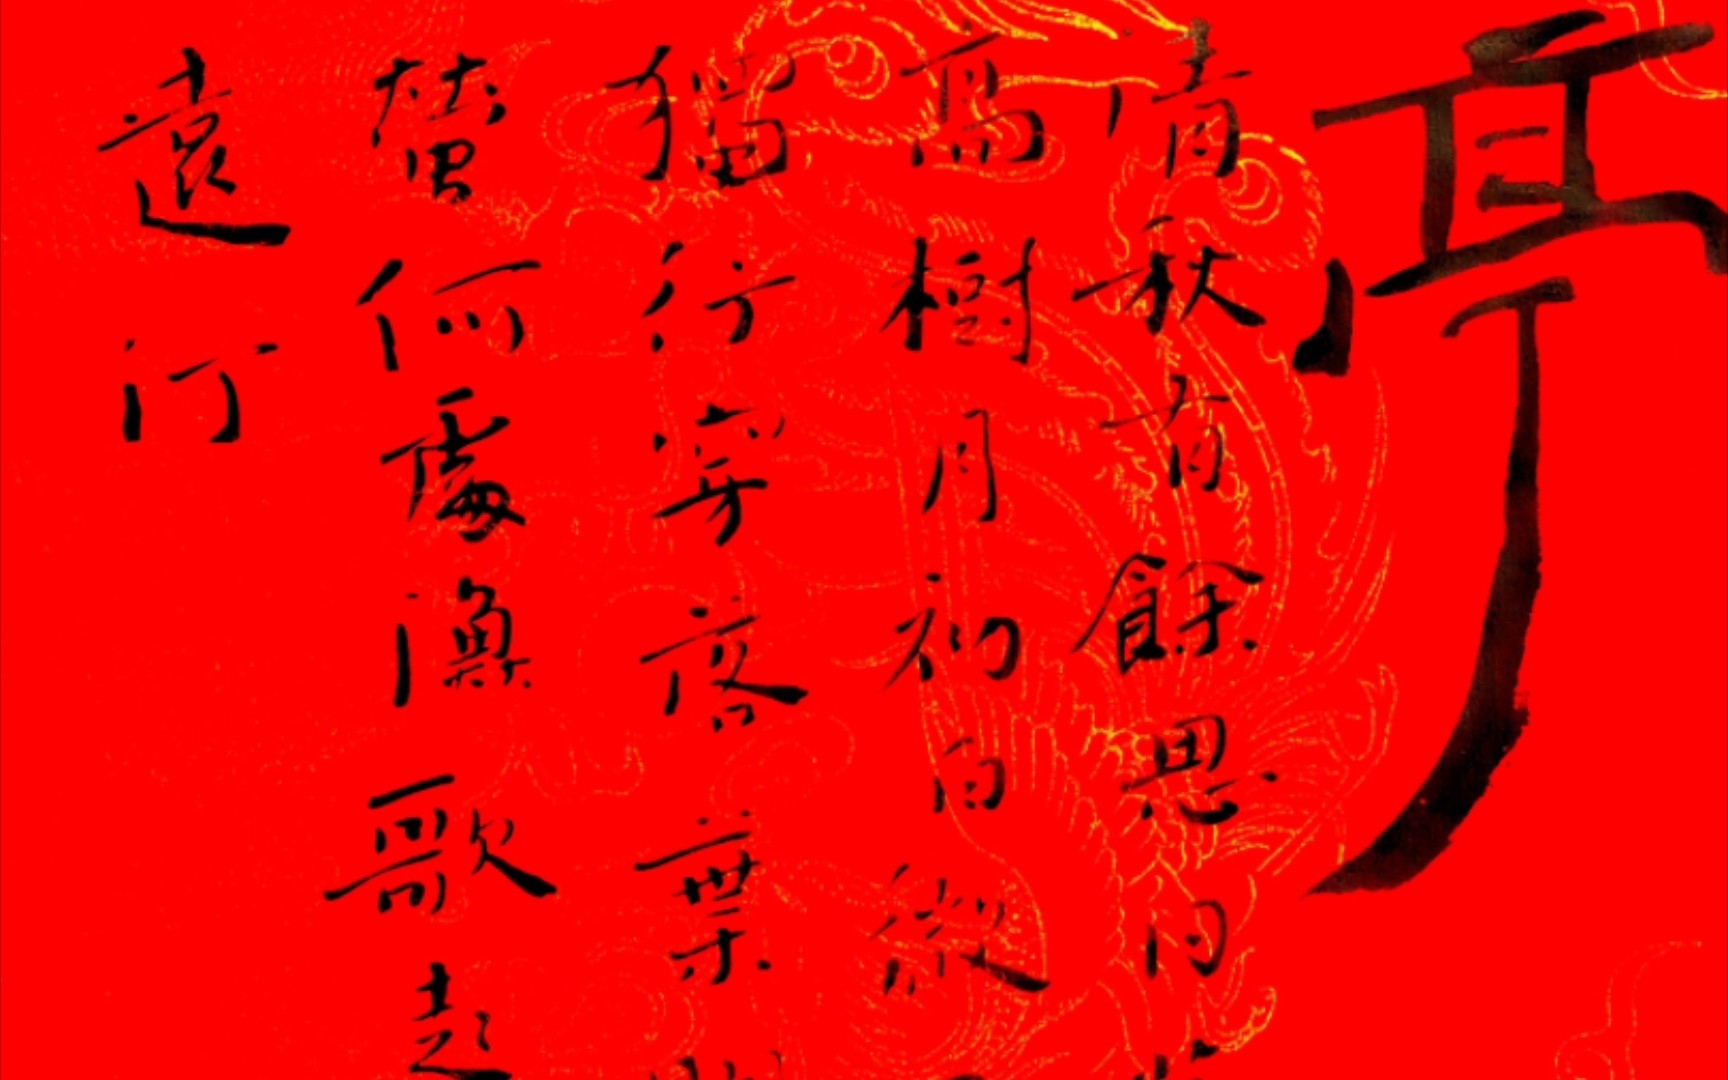 亭
清秋有餘思日
高樹月初白微
獨行穿落葉
螢何處漁歌起
遠汀